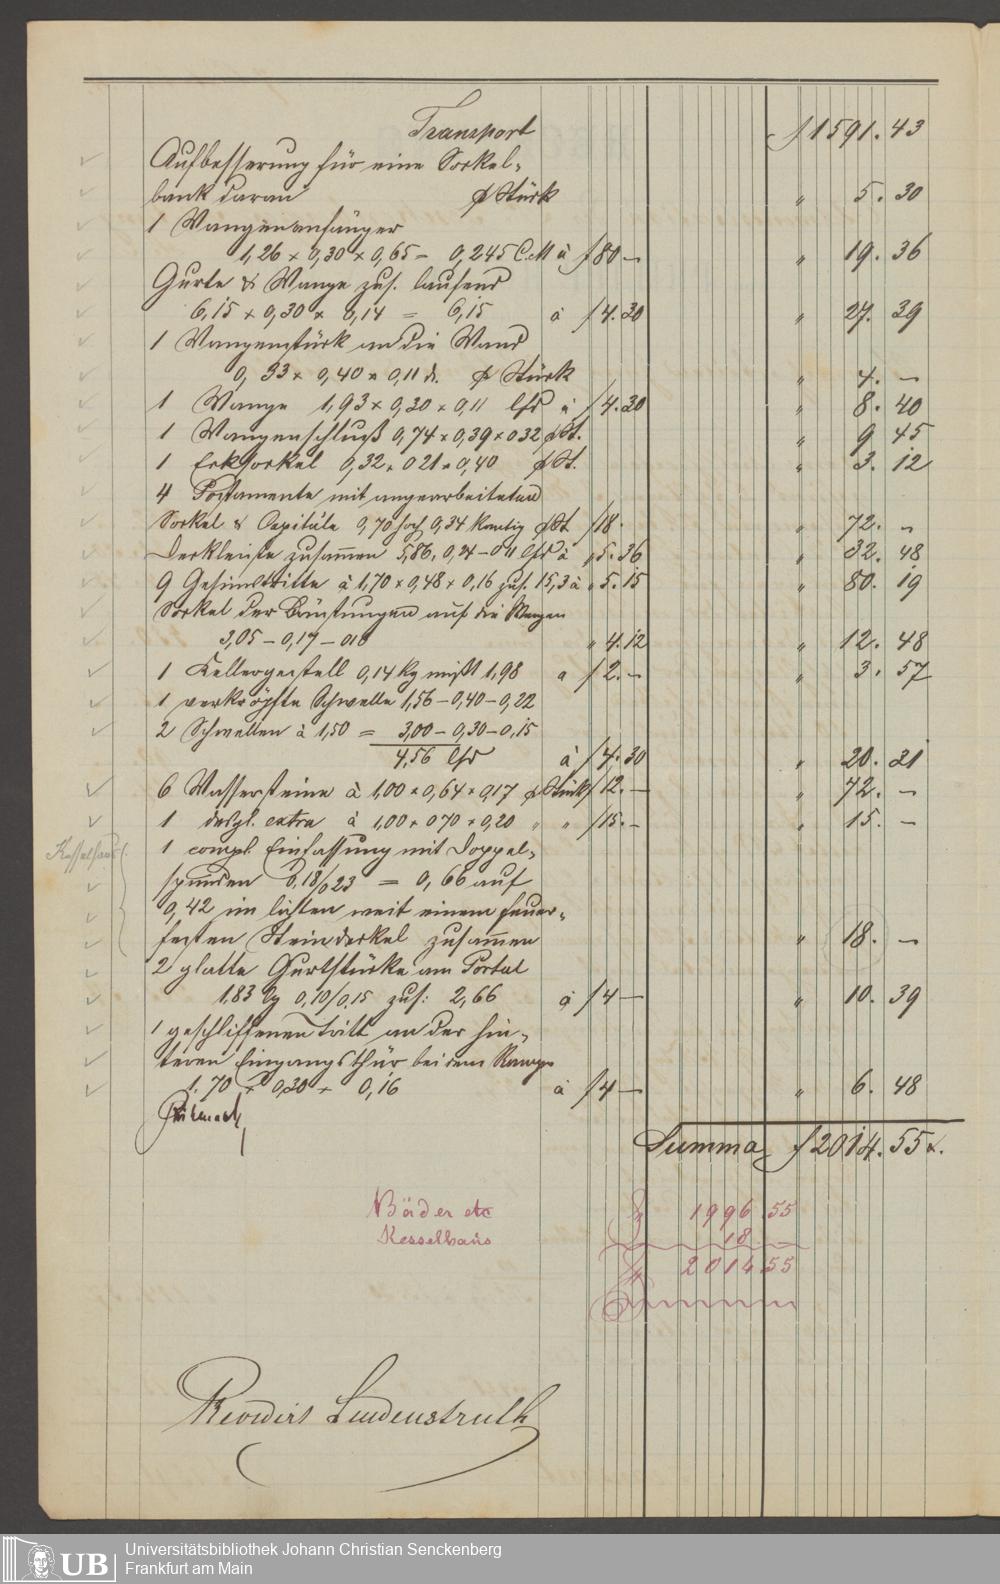 Transport f 1591. 43
Aufbesserung für eine Sockel-
bank daran p Stück " 5. 30
1 Wangenanfänger
1,26 × 0,30 × 0,65 = 0,245 C.M à f 80 — " 19. 36
Gurte & Wange zus. laufend
6,15 × 0,30 × 0,14 = 6,15 à f 4. 30 " 27. 39
1 Wangenstück an die Wand
0,33 × 0,40 × 0,11 d. p Stück " 4. —
1 Wange 1,93 × 0,30 × 0,11 lfd à f 4. 30 " 8. 40
1 Wangenschluß 0,74 × 0,39 × 032 p St. " 9 45
1 Ecksockel 0,32 × 021 × 0,40 p St. " 3. 12
4 Postamente mit angearbeiteten
Sockel & Capitäle 0,70 hoch 0,34 kantig p St f 18. " 72. —
Deckleiste zusammen 5,86, 0,24 – 011 lfd à " 5. 36 " 32. 48
9 Gesimstritte à 1,70 × 0,48 × 0,16 zus. 15,3 à " 5. 15 " 80. 19
Sockel der Brüstungen auf die Wangen
3,05 – 0,17 – 018 " 4. 12 " 12. 48
1 Kellergestell 0,14 mißt 1,98 a f 2. — " 3. 57
1 verkröpfte Schwelle 1,56 – 0,40 – 0,22
2 Schwellen à 1,50 = 3,00 – 0,30 – 0,15
4,56 lfd à f 4. 30 " 20. 21
6 Wassersteine à 1,00 × 0,64 × 0,17 p Stück f 12. — " 72. —
1 desgl. extra à 1,00 × 070 × 0,20 " " f 15. — " 15. —
Kesselhaus 1 compl. Einfassung mit Doppel-
0,18/023 = 0,66 auf
0,42 im lichten weit einem feuer-
festen Steindeckel zusammen " 18. —
2 glatte Gurtstücke am Portal
1,83 lg 0,10/0,15 zus: 2,66 à f 4 — " 10. 39
1 geschliffenen Tritt an der hin-
teren Eingangsthür bei dem Rampe
1,70 × 0,30 × 0,16 à f 4 — " 6. 48
Summa f 2014. 55 x.
Bäder etc f 1996 55
Kesselhaus 18 —
f 2014 55
Revidirt Lindenstruth
UB
Universitätsbibliothek Johann Christian Senckenberg
Frankfurt am Main